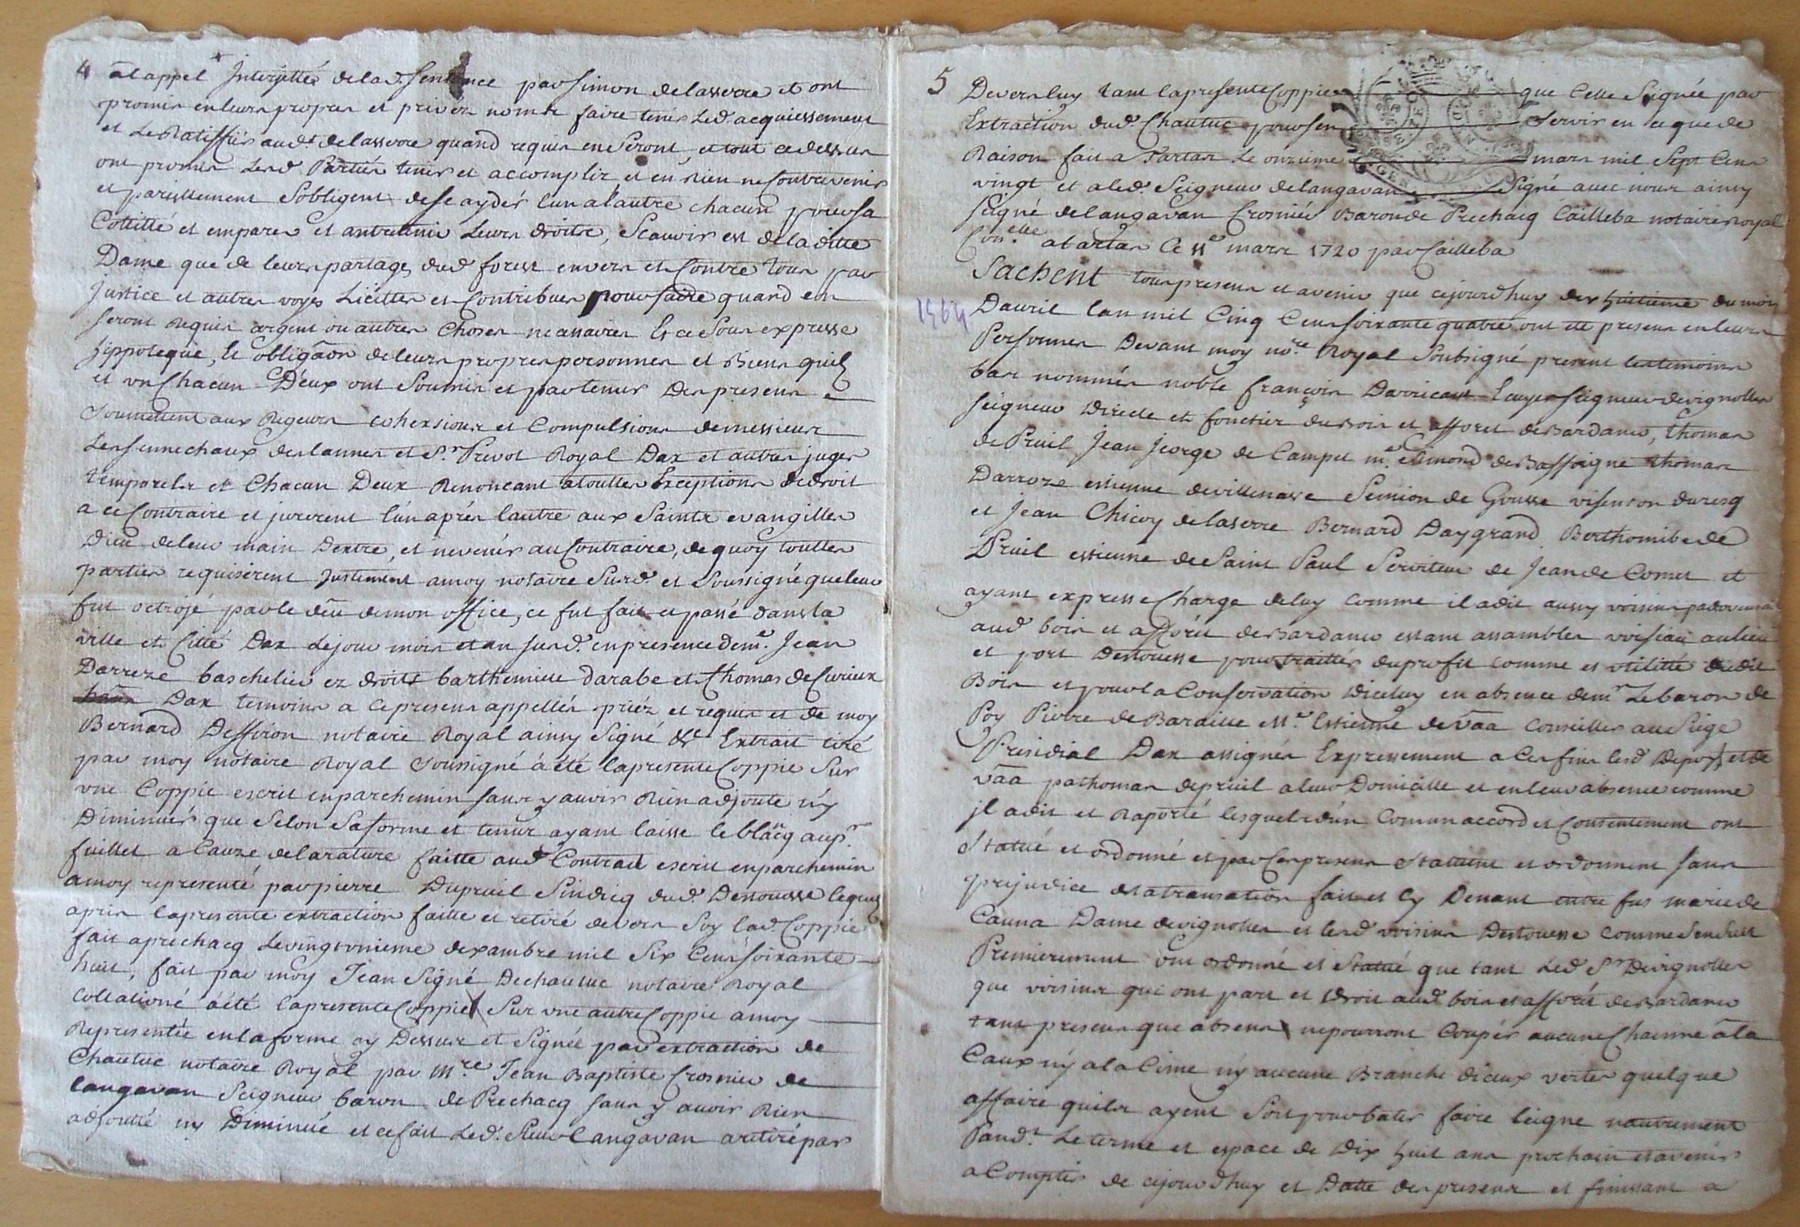 4 a lappel Interjetté de lad. Sentence par Simon delasserre et ont
promis en leurs propres et privéz noms faire tenir Led. acquiessement
et Le Ratiffier aud. delasserre quand requis en Seront, et tout ce dessus
ont promis Lesd. Parties tenir et accomplir et en Rien ne Contrevenir
et pareillement Sobligent de se aydér lun a lautre chacun pour sa
Cottitté et emparer et antretenir Leurs droits, Scauoir est de laditte
Dame que de leurs partages dud. forest envers et Contre tous par
Justice et autres voyes Liçittes et Contribuer pour faire quand en
seront Requis argent ou autres Choses necessaires Et ce Sous expresse
hippoteque, et obligãon de leurs propres personnes et Biens quils
et vn Chacun D'eux ont Soumis et par tenur Des presens
Soumettent aux Rigeurs cohersions et Compulsions de messieurs
Les Sennechaux des lannes et Sr. Prevot Royal Dax et autres juges
temporels et Chacun Deux Renoncant a touttes Exceptions de droit
a ce Contraire et jurerent lún aprés lautre aux Saints evangilles
Dieu de leur main Dextre, et nevenir au Contraire, de quoy touttes
parties requisérent Justement a moy notaire Susd. et Soussigné que leur
fut octrojé par le deu de mon office, ce fut fait et passé dans la
ville et Citté Dax Le jour mois et an susd. en presence de me. Jean
Darreze baschelier ez droits barthemieu darabe et Thomas de Curieux
Dax temoins a ce presens appellés priéz et requis et de moy
Bernard Deffiron notaire Royal ainsy Signé &c Extrait tiré
par moy notaire Royal Soussigné a été lapresente Coppie Sur
vne Coppie escrit en parchemin sans y auoir Rien adjouté ny
Diminuér que Selon Sa forme et tenur ayant laisse le blãcq au pr.
fuillet a Cauze de la rature faitte aud. Contrait escrit en parchemin
a moy representé par pierre Dupruil Sindicq dud. Destouesse lequel
apres lapresente extraction faitte et retiré devers Soy lad. Coppie
fait a prechacq Le vingt vnieme dexambre mil Six Cens soixante
huit, fait par moy Jean Signé Dechautuc notaire Royal
collationé a été lapresente Coppie Sur vne autre Coppie a moy
Representée en la forme cy Dessus et Signée par extraction de
Chautuc notaire Royal par Mre. Jean Baptiste Crosnier de
langavan Seigneur baron de Prechacq sans y auoir Rien
adjoutté ny Diminué et ce fait Led. Sieur Langavan a retiré par
5 Devers luy tant lapresente Coppie que Celle Signée par
Extraction dud. Chautuc pour sen servir en ce que de
Raison fait a Tartas Le onzieme mars mil Sept Cens
vingt et a led. Seigneur de langavan Signé avec nous ainsy
signé de Langavan Crosnier Baron de Prechacq Cailleba notaire Royal
Con.elle a tartas Ce 11e mars 1720 par Cailleba
Sachent tous presens et avenir que cejourdhuy dix huitieme du mois
1564 Dauril lan mil Cinq Cens soixante quatre ont été presens en leurs
Personnes Devant moy nore. Royal Soubsigné present les temoins
bas nommés noble françois Darricau Ecuyer Seigneur de vignolles
seigneur directe et fonctier du bois et afforet de Bardanco, thomas
de Pruil Jean Jeorge de Campet me. Eamond de Bassoigne thomas
Darroze estienne de villenave Semion de Gousse visenson duresq
et Jean Chicoy delasserre Bernard Daygrand Berthomibe de
Pruil estienne de Saint Paul Serviteur de Jean de Comet et
ayant expresse Charge de luy comme il a dit aussy voisins
aud. bois et afforét de Bardanco estant assambles voisiau au lieu
et port Destouesse pour traitter du profit comme et vtilitté dudit
Bois et pour la Conservation diceluy en absence de mr. Le baron de
Poy Pierre de Baraille Me. Estienne de Vãa Conseiller au Siege
Presidial Dax assignes Expressement a Ces fins lesd. Depoy et de
vãa pa thomas depruil a leur Domicille et en leur absence comme
il a dit et Raporté lesquels dún Comun accord et Consentement ont
Statué et ordonné et par Ces presens Statuent et ordonnent sans
prejudice de la transation faitte Cy Devant entre fus marie de
Cauna Dame de vignolles et lesd. voisins Destouesse comme Sensuit
Premierement ont ordonné et Statué que tant Led. Sr. Devignolles
que voisins qui ont part et droit aud. bois et afforét de Bardanco
tant presens que absens ne pourront Coupér aucune Chaisne a la
Caux ny a la Cime ny aucune Branche diceux vertes quelque
affaire quils ayent Soit pour batir faire leigne nautrement
Pandt. Le terme et espace de dix huit ans prochain et avenir
a Compter de cejourdhuy et Datte des presens et finissant a